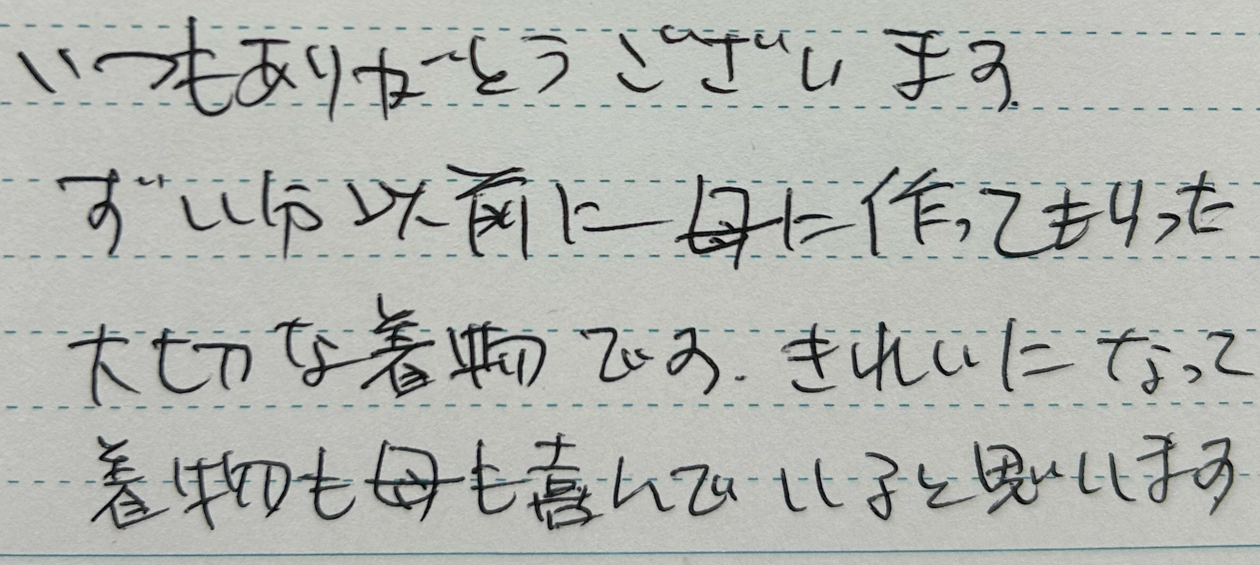 いつもありがとうございます.
ずい分以前に母に作ってもらった
大切な着物です.きれいになって
着物も母も喜んでいると思います